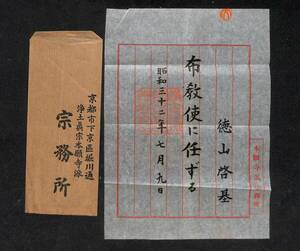 徳山啓基
布教使に任ずる
昭和三十二年七月九日
京都市下京区堀川通
浄土真宗本願寺派
宗務所